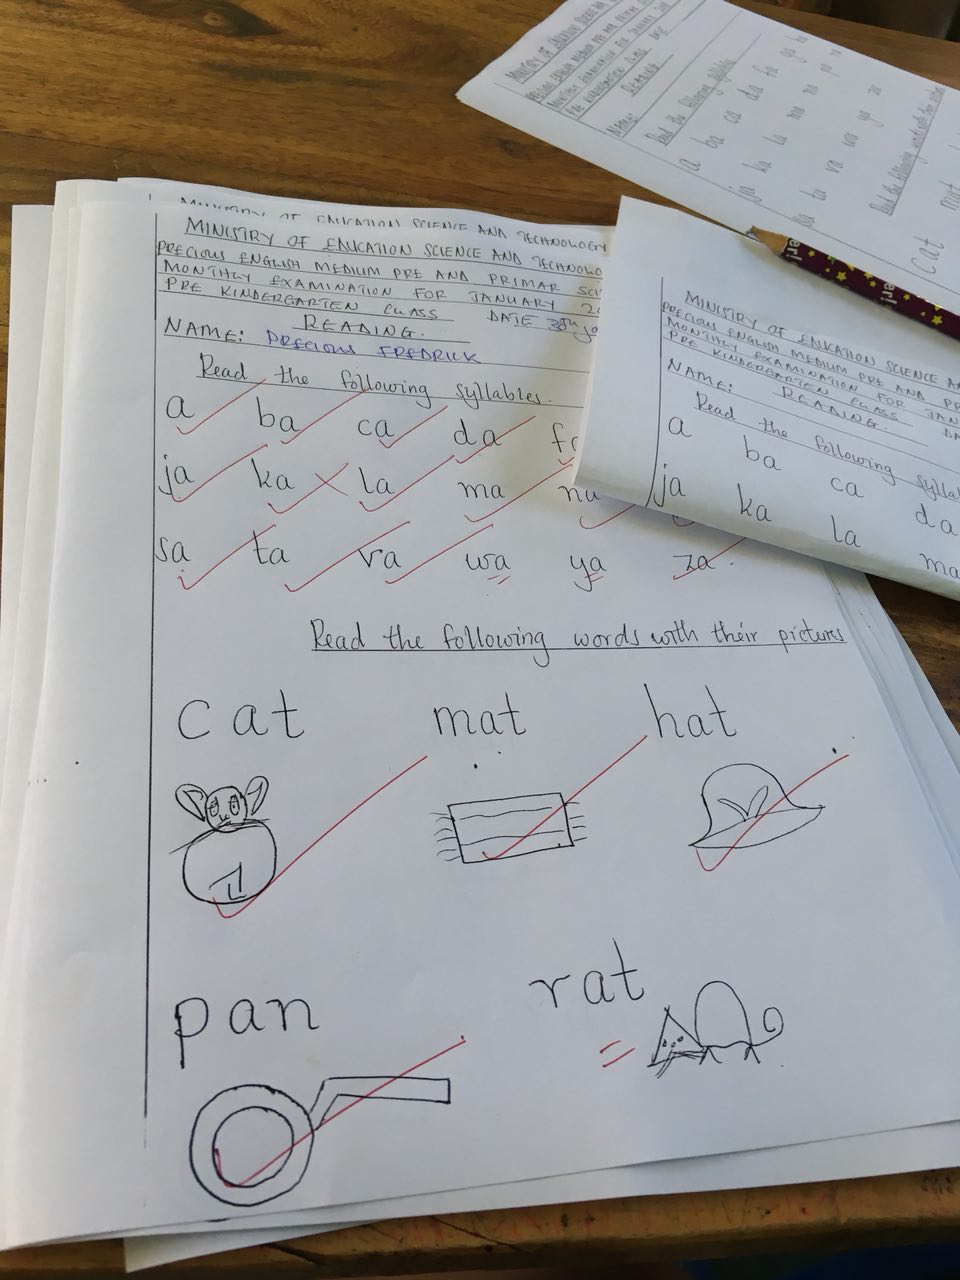 MINISTRY OF EDUCATION SCIENCE AND TECHNOLOGY
MINISTRY OF EDUCATION SCIENCE AND TECHNOLO
PRECIOUS ENGLISH MEDIUM PRE AND PRIMAR SC
MONTHLY EXAMINATION FOR JANUARY 2
PRE KINDERGARTEN CLASS DATE 30th Ja
READING.
NAME: PRECIOUS FREDRICK
Read the following syllables.
a ba ca da fa
ja ka la ma na
sa ta va wa ya za .
Read the following words with their pictures
cat mat hat
pan rat
MINISTRY OF EDUCATION SCIENCE A
PRECIOUS ENGLISH MEDIUM PRE AND PR
MONTHLY EXAMINATION FOR JAN
PRE KINDERGARTEN CLASS DA
READING.
NAME:
Read the following syllab
a ba ca da
ja ka la ma
MINISTRY OF EDUCATION SCIENCE
PRECIOUS ENGLISH MEDIUM PRE AND PRIMAR
MONTHLY EXAMINATION FOR JANUARY
PRE KINDERGARTEN CLASS DATE
READING
NAME:
Read the following syllables
a ba ca da fa ga ha
ja ka la ma na pa ra
sa ta va wa ya za
Read the following words with their
cat mat
er!
er!